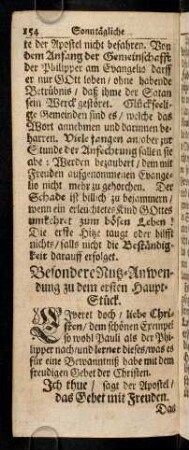 154 Sonntägliche
te der Apostel nicht befahren. Von
dem Anfang der Gemeinschafft
der Philipper am Evangelio darff
er nur GOtt loben / ohne habende
Betrübnis / daß ihme der Satan
sein Werck gestöret. Glückseeli-
ge Gemeinden sind es / welche das
Wort annehmen und darinnen be-
harren. Viele fangen an / aber zur
Stunde der Anfechtung fallen sie
abe: Werden bezaubert / dem mit
Freuden aufgenommenen Evange-
lio nicht mehr zu gehorchen. Der
Schade ist billich zu bejammern /
wenn ein erleuchtetes Kind GOttes
umkehret zum bösen Leben?
Die erste Hitze taugt oder hilfft
nichts / falls nicht die Beständig-
keit darauff erfolget.
Besondere Nutz-Anwen-
dung zu dem ersten Haupt-
Stück.
Iſweret doch / liebe Chri-
sten / dem schönen Exempel
so wohl Pauli als der Phi-
lipper nach / und lernet dieses / was es
für eine Bewantniß habe mit dem
freudigen Gebet der Christen.
Ich thue / sagt der Apostel /
das Gebet mit Freuden.
Das